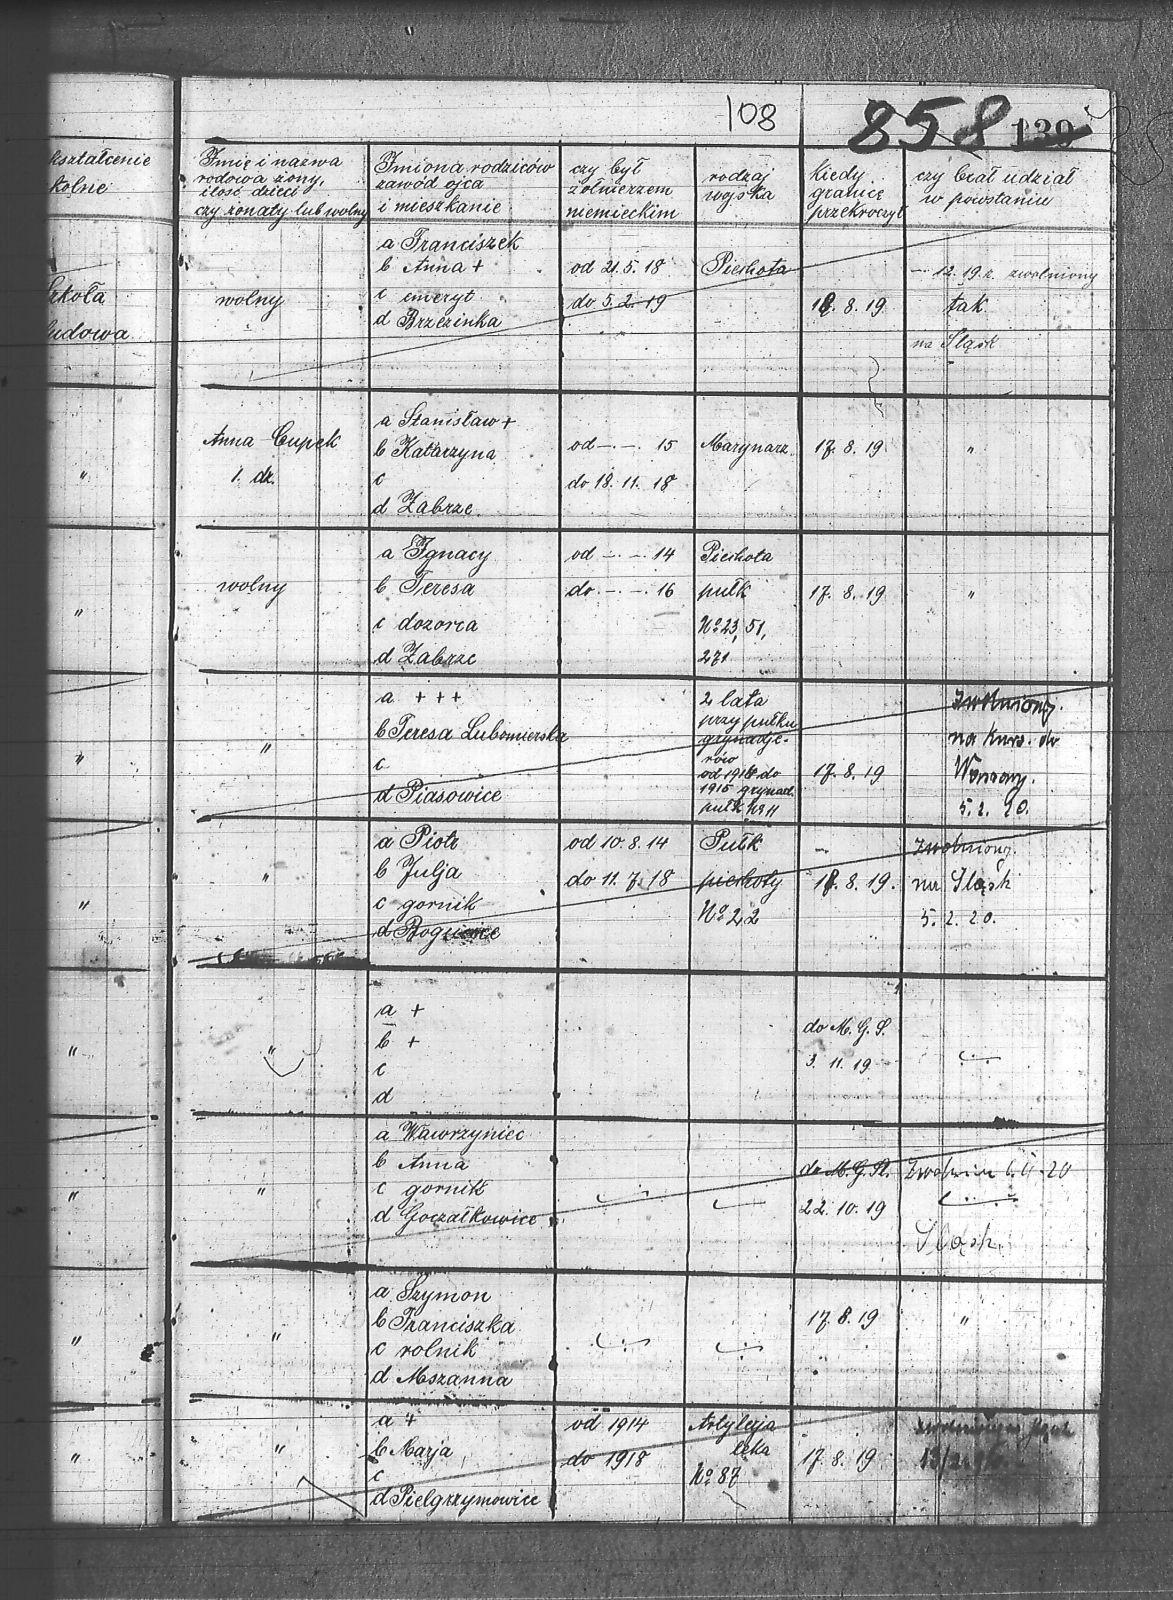 108
858
139
kształcenie
kolne
Imię i nazwa
rodowa żony,
ilość dzieci
czy żonaty lub wolny
Imiona rodziców
zawód ojca
i mieszkanie
czy był
żołnierzem
niemieckim
rodzaj
wojska
kiedy
granicę
przekroczył
czy brał udział
w powstaniu
Szkoła
ludowa
wolny
a Franciszek
b Anna +
c emeryt
d Brzezinka
od 21. 5. 18
do 5. 2. 19
Piechota
18. 8. 19
— 12. 19 r. zwolniony
tak
na Śląsk
"
Anna Cupek
1. dz.
a Stanisław +
b Katarzyna
c
d Zabrze
od — · — · 15
do 18. 11. 18
Marynarz
17. 8. 19
"
"
wolny
a Ignacy
b Teresa
c dozorca
d Zabrze
od — · — · 14
do — · — · 16
Piechota
pułk
No 23, 51,
271
17. 8. 19
"
"
"
a + + +
b Teresa Lubomierska
c
d Piasowice
2 lata
przy pułku
grynadje-
rów
od 1914 do
1915 grynad.
pułk No 11
17. 8. 19
zwolniony.
na kurs. do
5. 2. 20.
"
"
a Piotr
b Julja
c gornik
d
od 10. 8. 14
do 11. 7. 18
Pułk
piechoty
No 22
18. 8. 19.
zwolniony.
na Śląsk
5. 2. 20.
"
"
a +
b +
c
d
do M. G. S.
3. 11. 19
"
"
a Wawrzyniec
b Anna
c gornik
d Goczałkowice
do M. G. R.
22. 10. 19
20
Śląsk
"
"
a Szymon
b Franciszka
c rolnik
d Mszanna
17. 8. 19
"
"
"
a +
b Marja
c
d Pielgrzymowice
od 1914
do 1918
Artyleja
leka
No 87
17. 8. 19